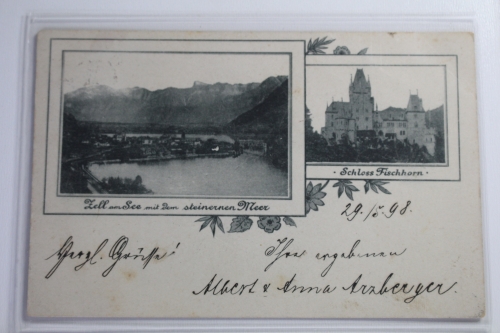 Schloss Fischhorn.
Zell am See mit Dem steinernen Meer
29./5.98.
Hergl. Grüsse! Ihre ergebenen
Albert & Anna Arzberger.